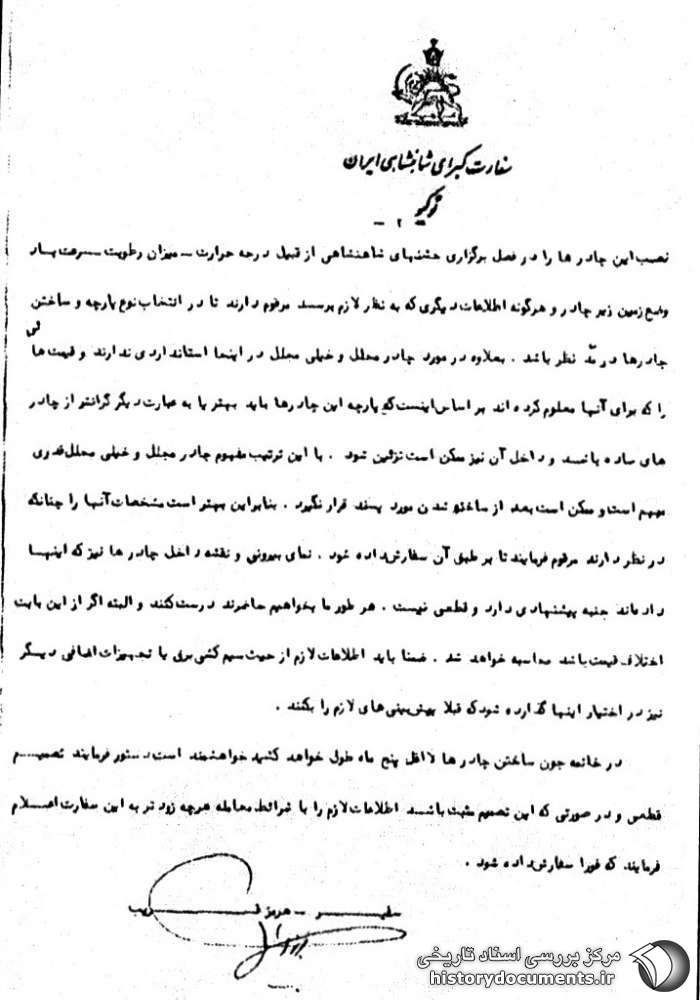 سفارت کبرای شاهنشاهی ایران
توکیو
- ۲ -
نصب این چادر ها را در فصل برگزاری جشنهای شاهنشاهی از قبیل درجه حرارت - میزان رطوبت - سرعت باد
وضع زمین زیر چادر و هرگونه اطلاعات دیگری که به نظر لازم برسد مرقوم دارند تا در انتخاب نوع پارچه و ساختن
چادرها در مدّ نظر باشد . بعلاوه در مورد چادر مجلل و خیلی مجلل در اینجا استانداردی ندارند و قیمت ها ئی
را که برای آنها معلوم کرده اند بر اساس اینست که پارچه این چادرها باید بهتر یا به عبارت دیگر گرانتر از چادر
های ساده باشد و داخل آن نیز ممکن است تزئین شود . با این ترتیب مفهوم چادر مجلل و خیلی مجلل قدری
مبهم است و ممکن است بعد از ساخته شدن مورد پسند قرار نگیرد . بنابراین بهتر است مشخصات آنها را چنانکه
در نظر دارند مرقوم فرمایند تا بر طبق آن سفارش داده شود . نمای بیرونی و نقشه داخل چادر ها نیز که اینها
داده اند جنبه پیشنهادی دارد و قطعی نیست . هر طور ما بخواهیم حاضرند درست کنند و البته اگر از این بابت
اختلاف قیمت باشد محاسبه خواهد شد . ضمنا باید اطلاعات لازم از حیث سیم کشی برق یا تجهیزات اضافی دیگر
نیز در اختیار اینها گذارده شود که قبلا پیش بینی های لازم را بکنند .
در خاتمه چون ساختن چادر ها لااقل پنج ماه طول خواهد کشید خواهشمند است دستور فرمایند تصمیم
قطعی و در صورتی که این تصمیم مثبت باشد اطلاعات لازم را با شرائط معامله هرچه زود تر به این سفارت اعلام
فرمایند که فورا سفارش داده شود .
سفیر - هرمز قریب
مرکز بررسی اسناد تاریخی
historydocuments.ir